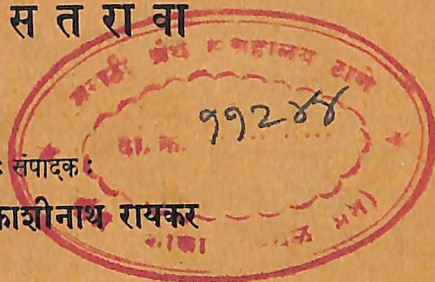 स त रा वा
मराठी ग्रंथ संग्रहालय ठाणे
दा. क्र. ११२४४
: संपादक :
काशीनाथ रायकर